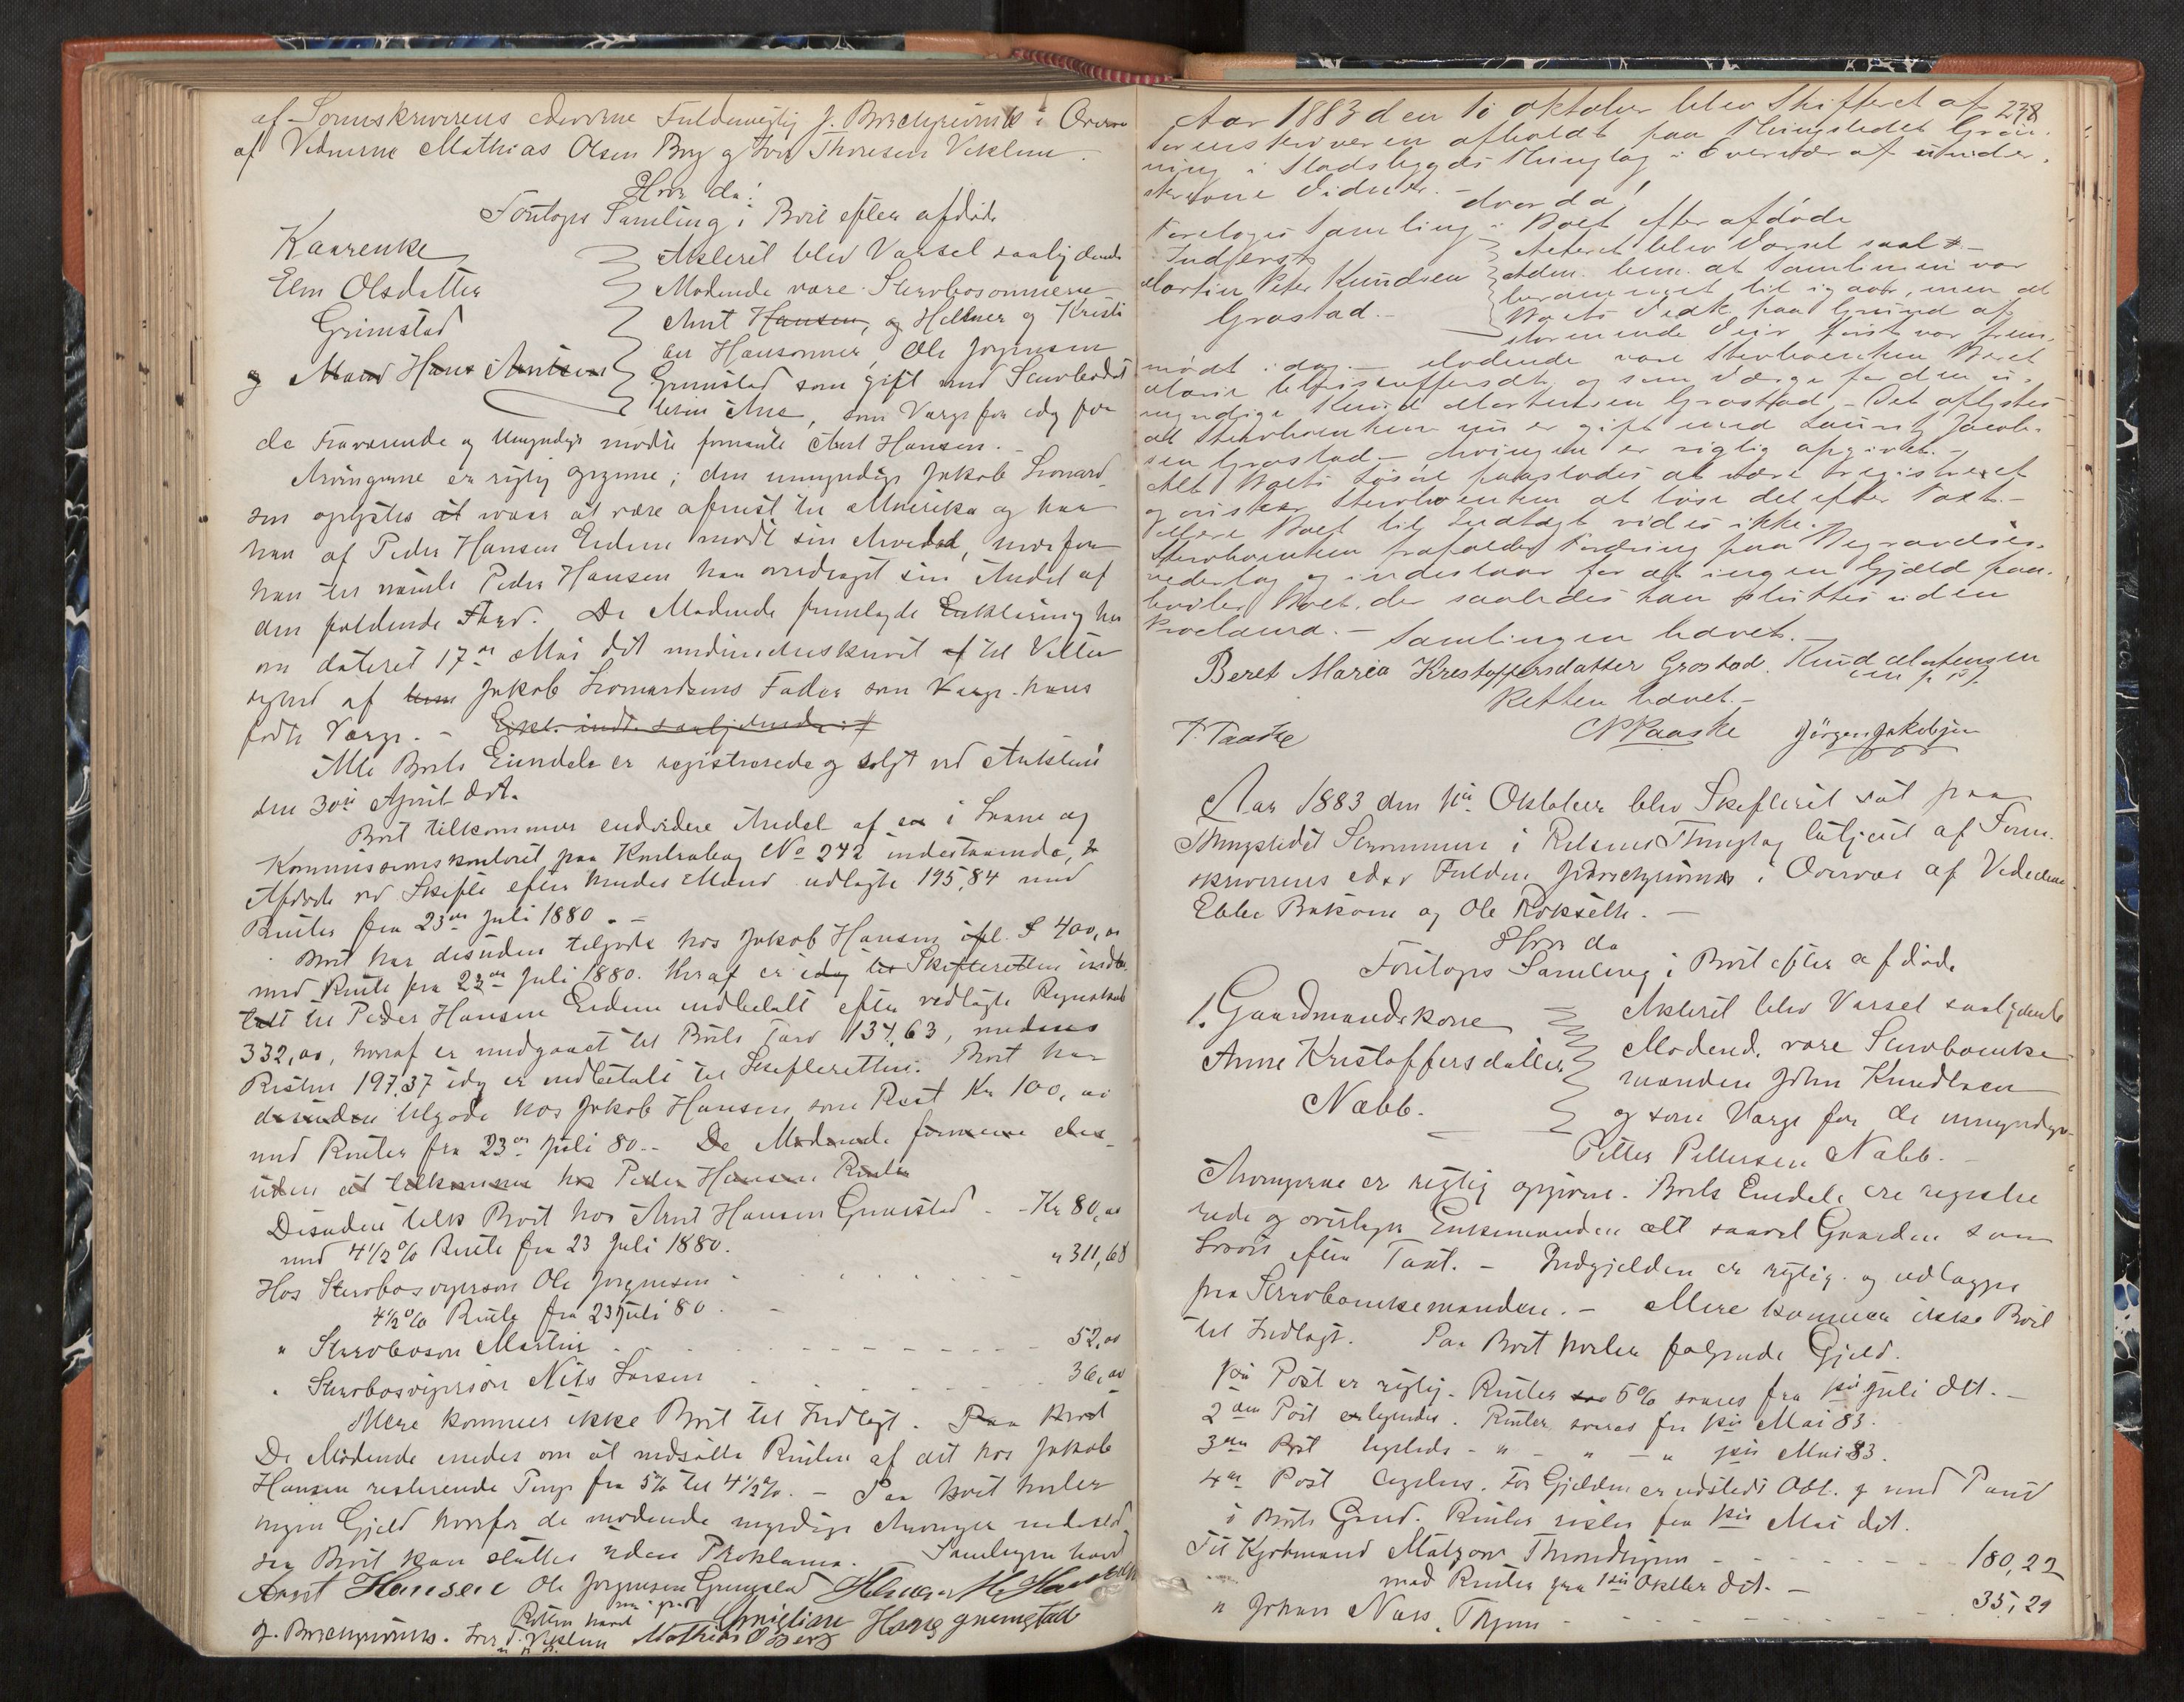 af Sorenskriverens edsvorne Fuldmægtig J. Borchgrevink i Overv
af Vidnerne Mathias Olsen Berg og Iver Thoresen Veklem.
Hvor da:
Foretoges Samling i Boet efter afdøde
Kaarenke
Elen Olsdatter
Grimstad
og Mand Hans Arntsen
Aktleret blev Varsel saalydende
Mødende vare Stervbosønnerne
Arnt Hansen, og Helmer og Kristi
an Hansønner, Ole Jørgensen
Grimstad som gift med Stervbodat
teren Ane, som Værge for idag for
de Fraværende og Umyndige mødte fornævnte Arnt Hansen. -
Arvingerne er rigtig opgivne; den umyndige Jakob Leonard
sen oplystes at være afreist til Amerika og har
han af Peder Hansen Eidem modt sin Arvedel, hvorfor
han til nævnte Peder Hansen har overdraget sin Andel af
den faldende Arv. De Mødende fremlagde Erklæring her
om dateret 17de Mai dit underskrevet af til Vitter
lighed af Jakob Leonardsens Fader som Værge hans
fødte Værge. - Erkl. indt. saalydende:
Alle Boets Eiendele er registrerede og solgt ved Auktion
den 30te April dit.
Boet tilkommer endvidere Andel af en i Laane og
Kommissionskontoret paa Kontrabog No 242 indestaaende,
Afdøde ved Skifte efter hendes Mand udlagte 195,84 med
Renter fra 23de Juli 1880. -
Boet har desuden tilgode hos Jakob Hansen 400,00
med Rente fra 23de Juli 1880. Heraf er idag til Skifteretten indb.
talt til Peder Hansen Eidem indbetalt efter vedlagte Regnskab
332,00, hvoraf er medgaaet til Boets Tarv 134,63, medens
Resten 197,37 idag er indbetalt til Skifteretten. Boet har
desuden tilgode hos Jakob Hansen som Rest Kr 100,00
med Renter fra 23de Juli 80. - De Mødende formene des-
uden at tilkomme hos Peder Hansen Renter
Desuden tilk Boet hos Arnt Hansen Grimstad - - Kr 80,00
med 4 1/2 % Rente fra 23 Juli 1880.
Hos Stervbosvigersøn Ole Jørgensen - " 311,68
4 1/2 % Rente fra 23 Juli 80. -
" Stervbosøn Martin - - - 52,00
" Stervbosvigersøn Nils Larsen - - - 36,00
Mere kommer ikke Boet til Indtægt. Paa Boet
De Mødende enedes om at nedsætte Renten af det hos Jakob
Hansen resterende Penge fra 5% til 4 1/2 %. - Paa Boet hviler
ingen Gjeld hvorfor de mødende myndige Arvinger
Boet kan sluttes uden Proklama. Samlingen hævet
Arnt Hansen Ole Jørgensen Grimstad Helmer Hansen
Retten hævet Christian Hans grimstad
J. Borchgrevink. Iver T. Veklem Mathias O Berg
238
Aar 1883 den 10 oktober blev Skifteret af
Sorenskriveren afholdt paa Thingstedet Grøn-
ning i Stadsbygdens Thinglag i Overvær af under-
skrevne Vidner. -
Hvor da!
Foretoges Samling i Boet efter afdøde
Inderst
Martin Peter Knudsen
Grostad. -
Aktetet blev Varsel saal. -
Adm. bem. at Samlingen var
berammet til igaar, men at
Boets Vedk. paa Grund af
stormende Veir først var frem-
mødt idag. - Mødende vare Stervboenken Beret
Marie Christoffersdt. og som Værge for den u-
myndige Knud Mortensen Grostad - Det oplystes
at Stervboenken nu er gift med Laurits Jacob-
sen Grostad - Arvingen er rigtig opgivet. -
Alt Boets Løsøre paastodes at være registreret
og ønsker Stervboenken at løse det efter Taxt. -
Videre Boet til Indtægt vides ikke.
Stervboenken frafalder Fordring paa Begravelses-
vederlag og indestaar for at ingen Gjæld paa-
hviler Boet, der saaledes kan sluttes uden
Proclama. - Samlingen hævet. -
Beret Maria Krestoffersdatter Grostad. Knud Mortensen
m p P
Retten hævet. -
F. Paaske N Paaske Jörgen Jakobsen
Aar 1883 den 11te Oktober blev Skifteret sat paa
Thingstedet Sørommen i Rissens Thinglag betjent af Soren
skriverens edsv Fuldm. J Borchgrevink i Overvær af Vidnerne
Ebbe Bakøen og Ole Rokseth. -
Hvor da
Foretoges Samling i Boet efter afdøde
1. Gaardmandskone
Anne Kristoffersdatter
Næbb.
Aktleret blev Varsel saalydende
Mødende vare Stervboenke
manden John Knudsen
og som Værge for de umyndige
Petter Pettersen Næbb. -
Arvingerne er rigtig opgivne. Boets Eiendele ere registre
rede og overtager Enkemanden alt saavel Gaarden som
Løsøre efter Taxt. - Indgjelden er rigtig og udlægges
paa Stervboenkemanden. - Mere kommer ikke Boet
til Indtægt. Paa Boet hviler følgende Gjeld.
1ste Post er rigtig. Renter 5% svares fra 1ste Juli dit. -
2den Post erlægendes. Renter svares fra 1ste Mai 83.
3die Post ligeledes - " - " - " 1ste Mai 83.
4de Post ligeledes. For Gjelden er udstedt Obl. og med Pant
i Boets Gaard. Renter rester fra 1ste Mai dit.
Til Kjøbmand Matzow Throndhjem - - - 180,22
med Renter fra 1ste Oktbr dit. -
" Johan Næss, Thjem - - - 35,21